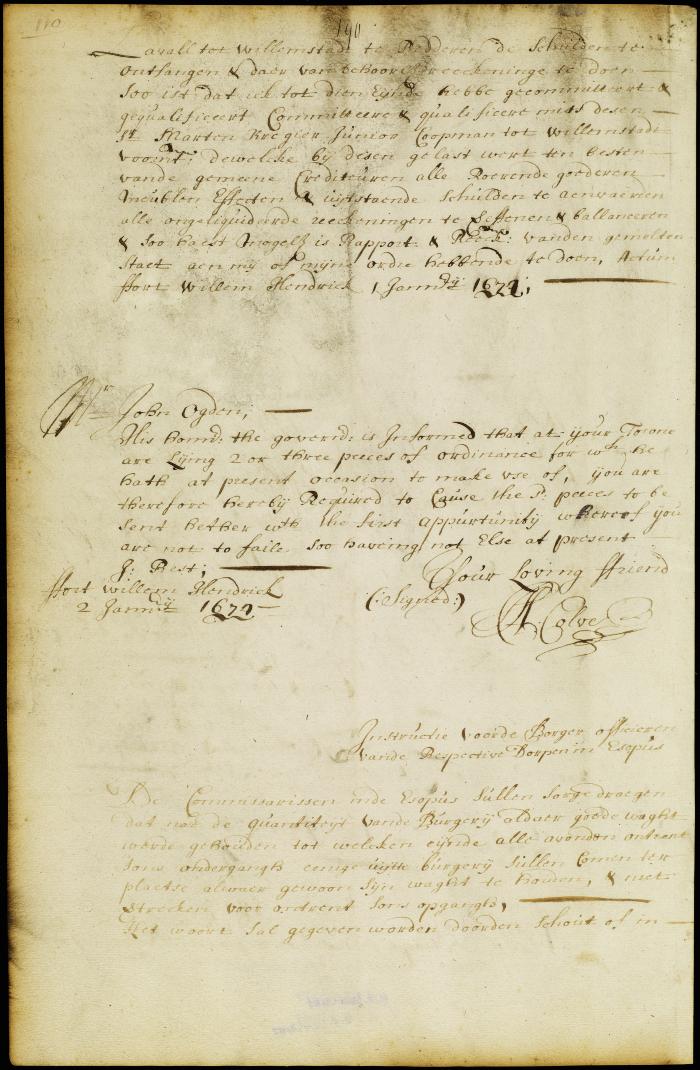 110
190
avall tot Willemstadt te Redderen de Schulden te
ontfangen & daer van behoorl reeckeninge te doen
Soo ist dat ick tot dien Eynde hebbe gecommitteert &
gequalificeert Committeere & qualificeere mits desen
Sr. Marten Kregier Junior Coopman tot Willemstadt
voornt: dewelcke bij desen gelast wert ten besten
vande gemeene Crediteuren alle Roerende goederen
Meublen Effecten & uijtstaende Schulden te aenvaerden
alle ongeliquideerde reeckeningen te Effenen & ballanceren
& soo haest mogelk is Rapport & Reeck: vanden gemelten
staet aen mij of mijne ordre hebbende te doen, Actum
ffort Willem Hendrick 1 Janrij 1674;
Mr John Ogden;
His honnd: the governdr: is Informed that at your Towne
are Lying 2 or three peeces of ordinance for wch he
hath at present occasion to make vse of, you are
therefore hereby Required to Cause the Sd. peeces to be
sent hether wth the first appurtunity whereof you
are not to faile. Soo haveing not Else at present
I: Rest;
Your Loving ffriend
ffort willem Hendrick
2 Janrij 1674
(:Signed:)
A. Colve
Instructie voorde Borger officieren
vande Respective Dorpen in Esopus
De Commissarissen inde Esopus Sullen Sorge draegen
dat nae de quantiteijt vande Burgerij aldaer goede waght
werde gehouden tot welcken eynde alle avonden ontrent
Sons ondergangh eenige uijtte burgerij Sullen Comen ter
plaetse alwaer gewoon Sijn waght te houden, & niet
Strecken voor ontrent Sons opgangh,
Het woort Sal gegeven worden doorden Schout of in